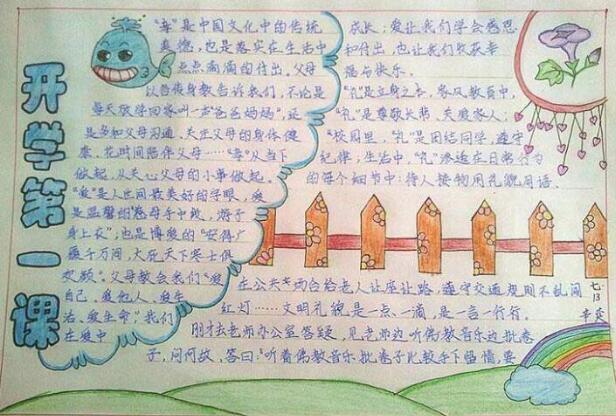 开学第一课
“孝”是中国文化中的传统
美德，也是落实在生活中
点点滴滴的付出。父母
以言传身教告诉我们，不论是
每天放学回家叫一声“爸爸妈妈”，还
是多和父母沟通，关注父母的身体健
康，花时间陪伴父母……“孝”从当下
做起，从关心父母的小事做起。
“爱”是人世间最美好的字眼，爱
是温馨的“慈母手中线，游子
身上衣”；也是博爱的“安得广
厦千万间，大庇天下寒士俱
欢颜”。父母教会我们“爱
自己、爱他人、爱生
活、爱生命”，我们
在爱中
成长；爱让我们学会感恩
和付出，也让我们收获幸
福与快乐。
“礼”是立身之本。家风教育中，
“礼”是尊敬长辈、关爱家人；
校园里，“礼”是团结同学，遵守
纪律；生活中，“礼”渗透在日常行为
的每个细节中：待人接物用礼貌用语、
在公共场所给老人让座让路、遵守交通规则不乱闯
红灯……文明礼貌是一点一滴，是一言一行。
朋才去老师办公室答疑，见老师边听佛教音乐边批卷
子，问何故，答曰：“听着佛教音乐批卷子比较手下留情，要
七.13